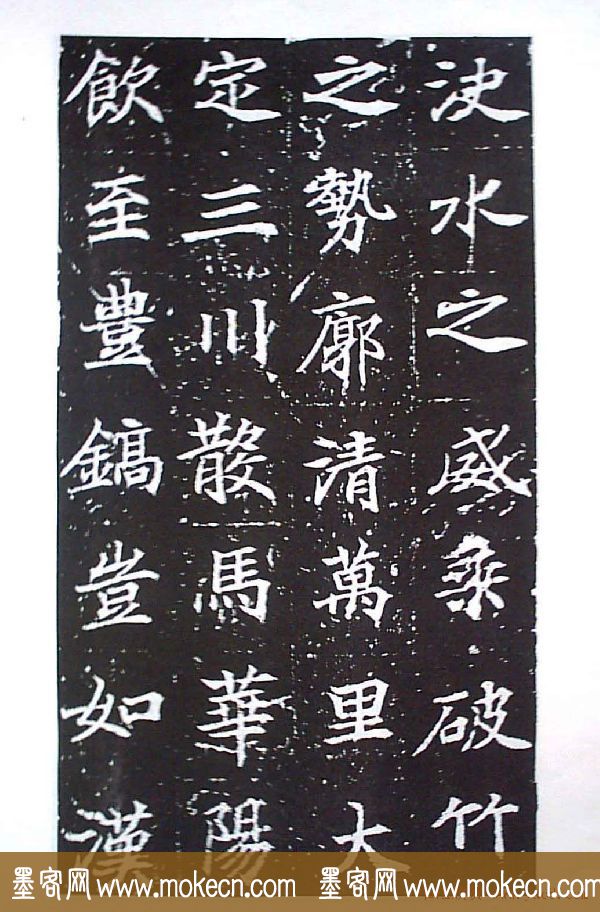 決水之威乘破竹
之勢廓清萬里大
定三川散馬華陽
飲至豊鎬豈如漢
墨客网 www.mokecn.com 墨客网 www.mokecn.com